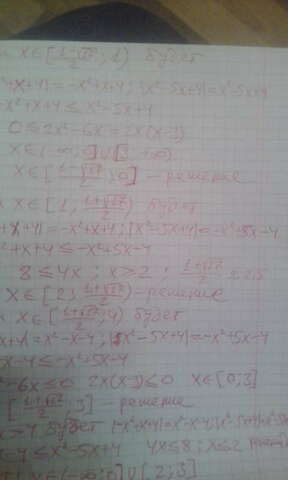 x∈[(1-√17)/2, 1) будет
²+x+4|=-x²+x+4; |x²-5x+4|=x²-5x+4
-x²+x+4≤x²-5x+4
0≤2x²-6x=2x(x-3)
x∈(-∞; 0]∪[3; +∞)
x∈[(1-√17)/2; 0] - решение
x∈[1, (1+√17)/2) будет
+x+4|=-x²+x+4; |x²-5x+4|=-x²+5x-4
²+x+4≤-x²+5x-4
8≤4x; x≥2; (1+√17)/2≈2,5
x∈[2; (1+√17)/2) - решение
x∈[(1+√17)/2; 4) будет
+x+4|=x²-x-4; |x²-5x+4|=-x²+5x-4
-x-4≤-x²+5x-4
²-6x≤0 2x(x-3)≤0 x∈[0;3]
[(1+√17)/2; 3] - решение
x>4 будет |-x²+x+4|=x²-x-4; |x²-5x+4|=x²-5x+4
-x-4≤x²-5x+4 4x≤8; x≤2
x∈(-∞;0]∪[2;3]